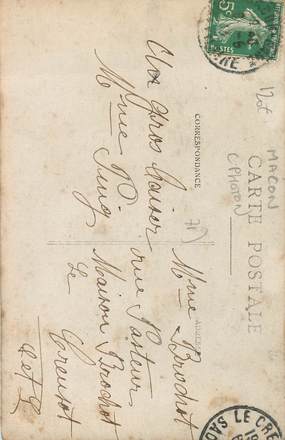 CARTE POSTALE
CORRESPONDANCE
ADRESSE
Un gros baiser
Mme Puig
Mme Brochot
rue Pasteur
Maison Brochot
Le Creusot
S et L
MACON
(PHOTO)
71
5c
POSTES
LE CRE